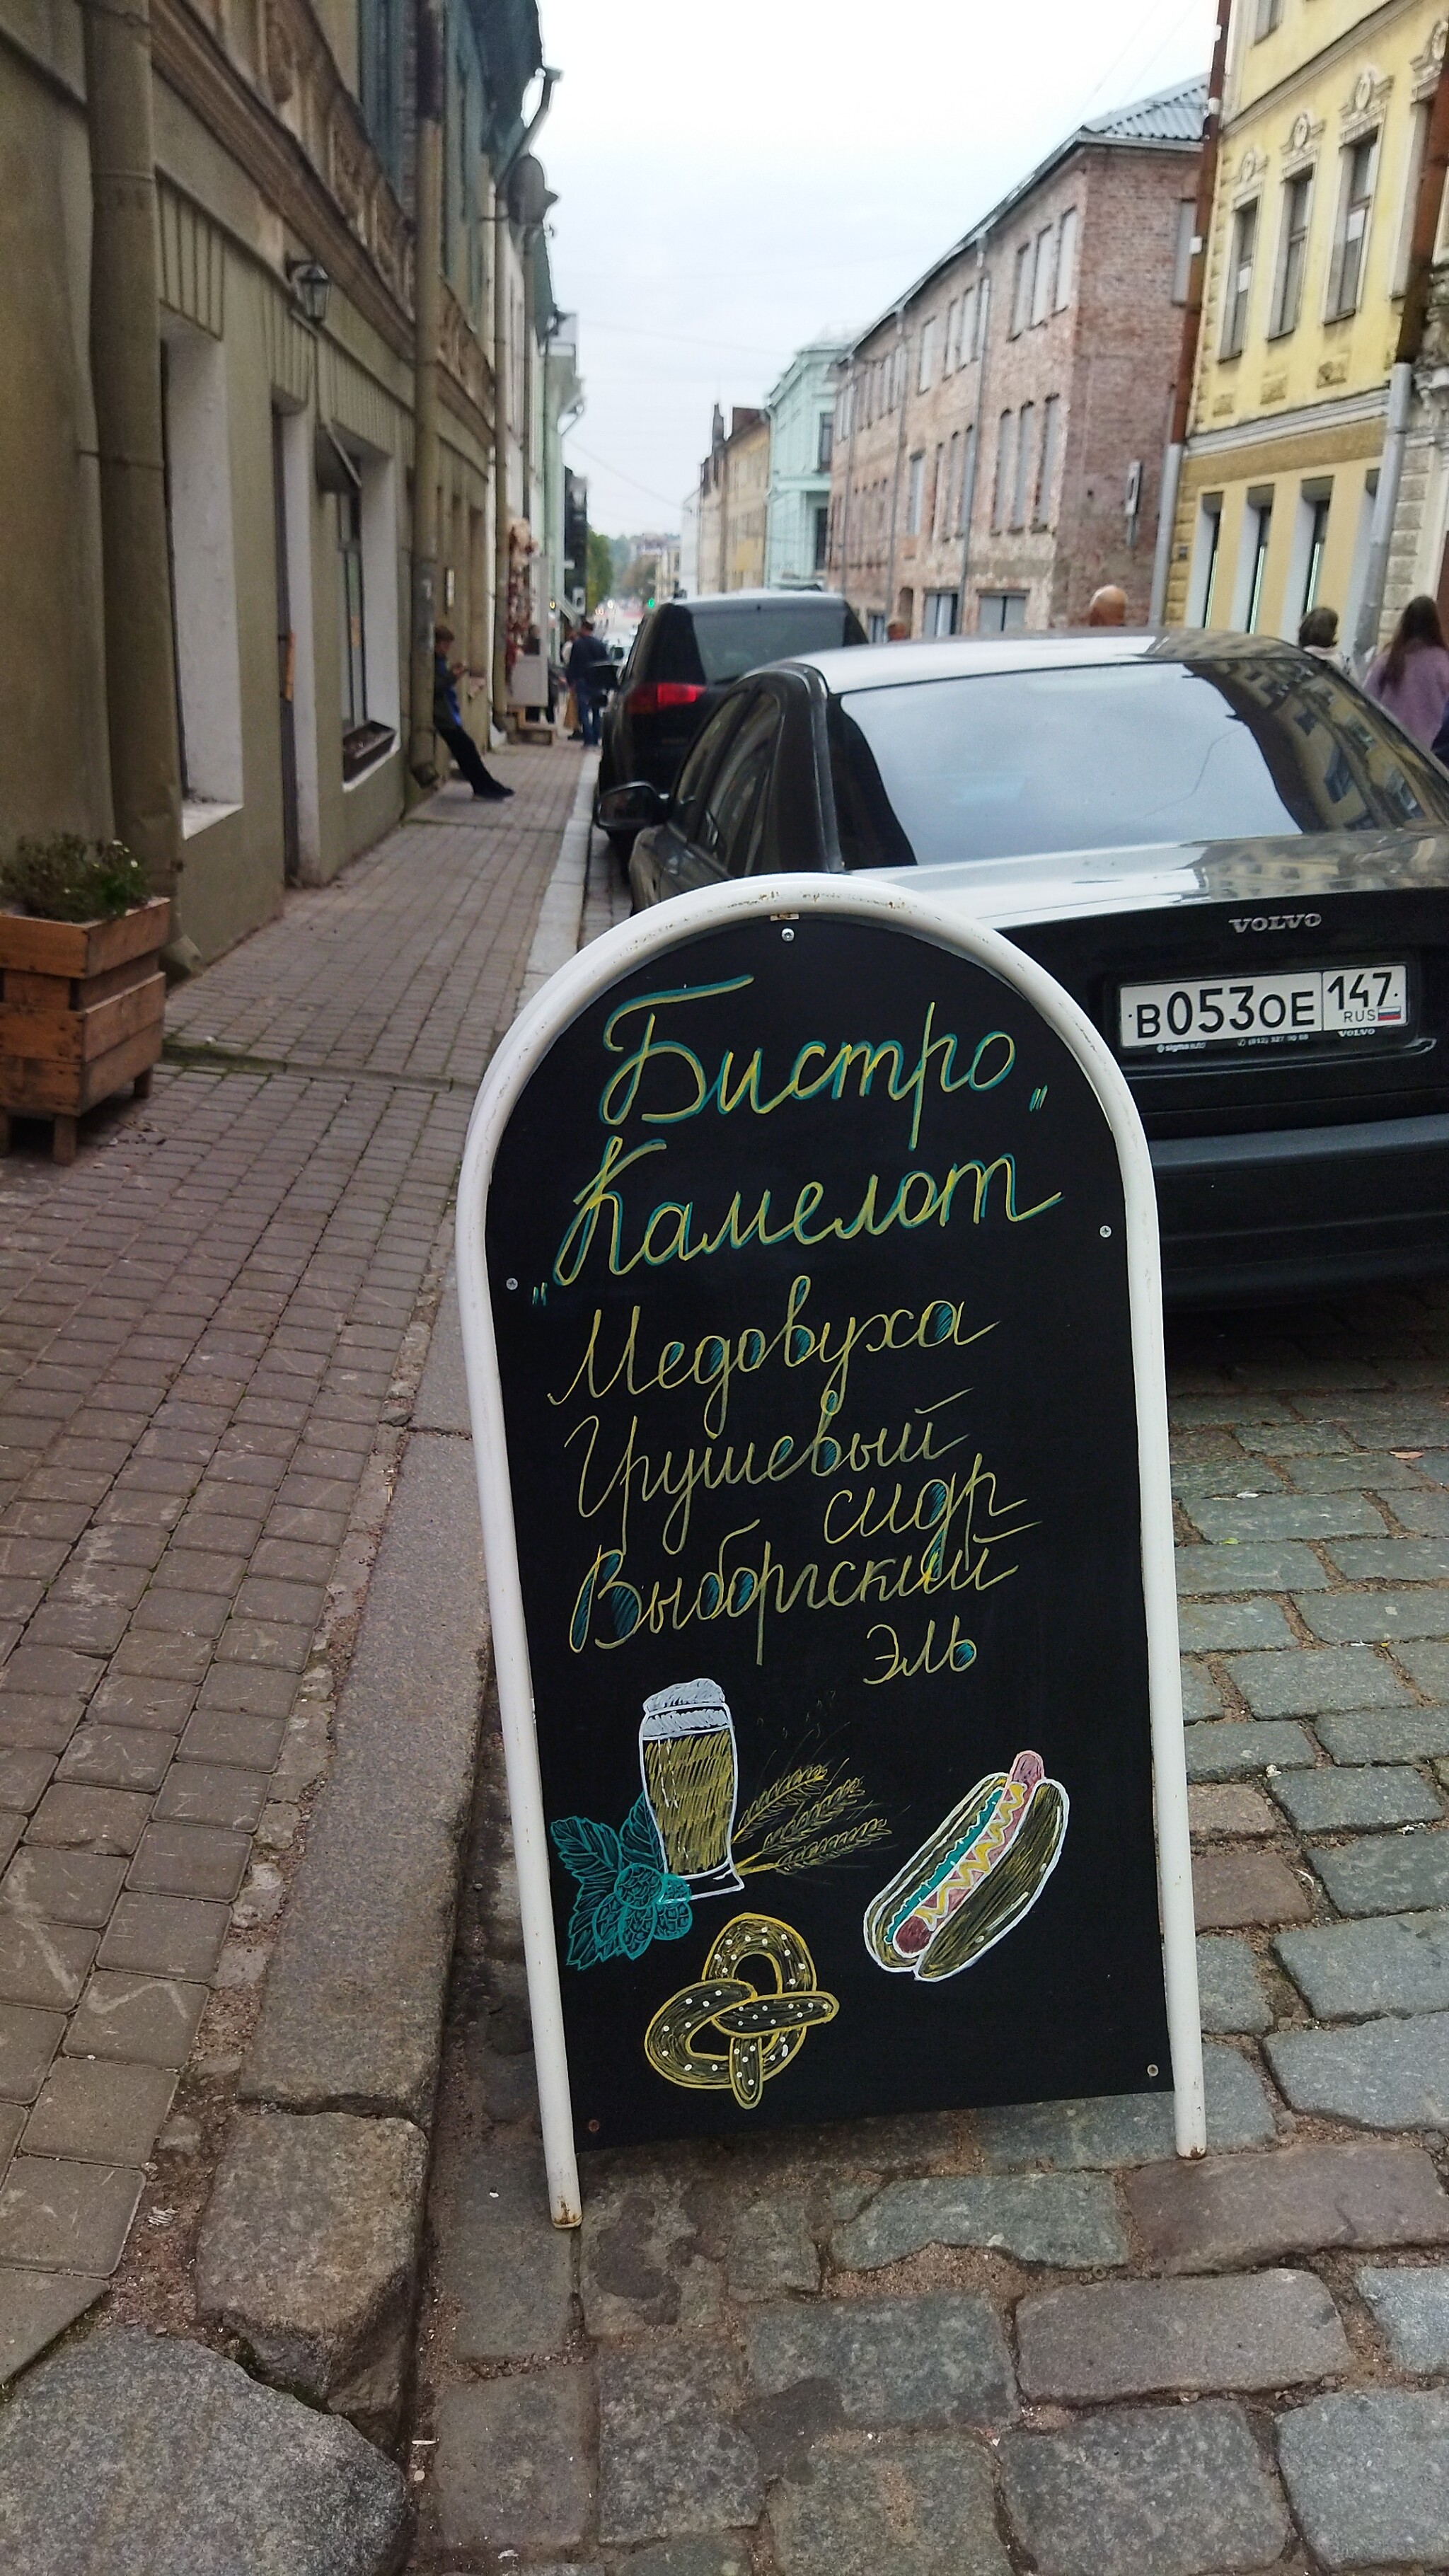 VOLVO
В053ОЕ 147
RUS
VOLVO
Бистро
„Камелот"
Медовуха
Грушевый
сидр
Выборгский
эль